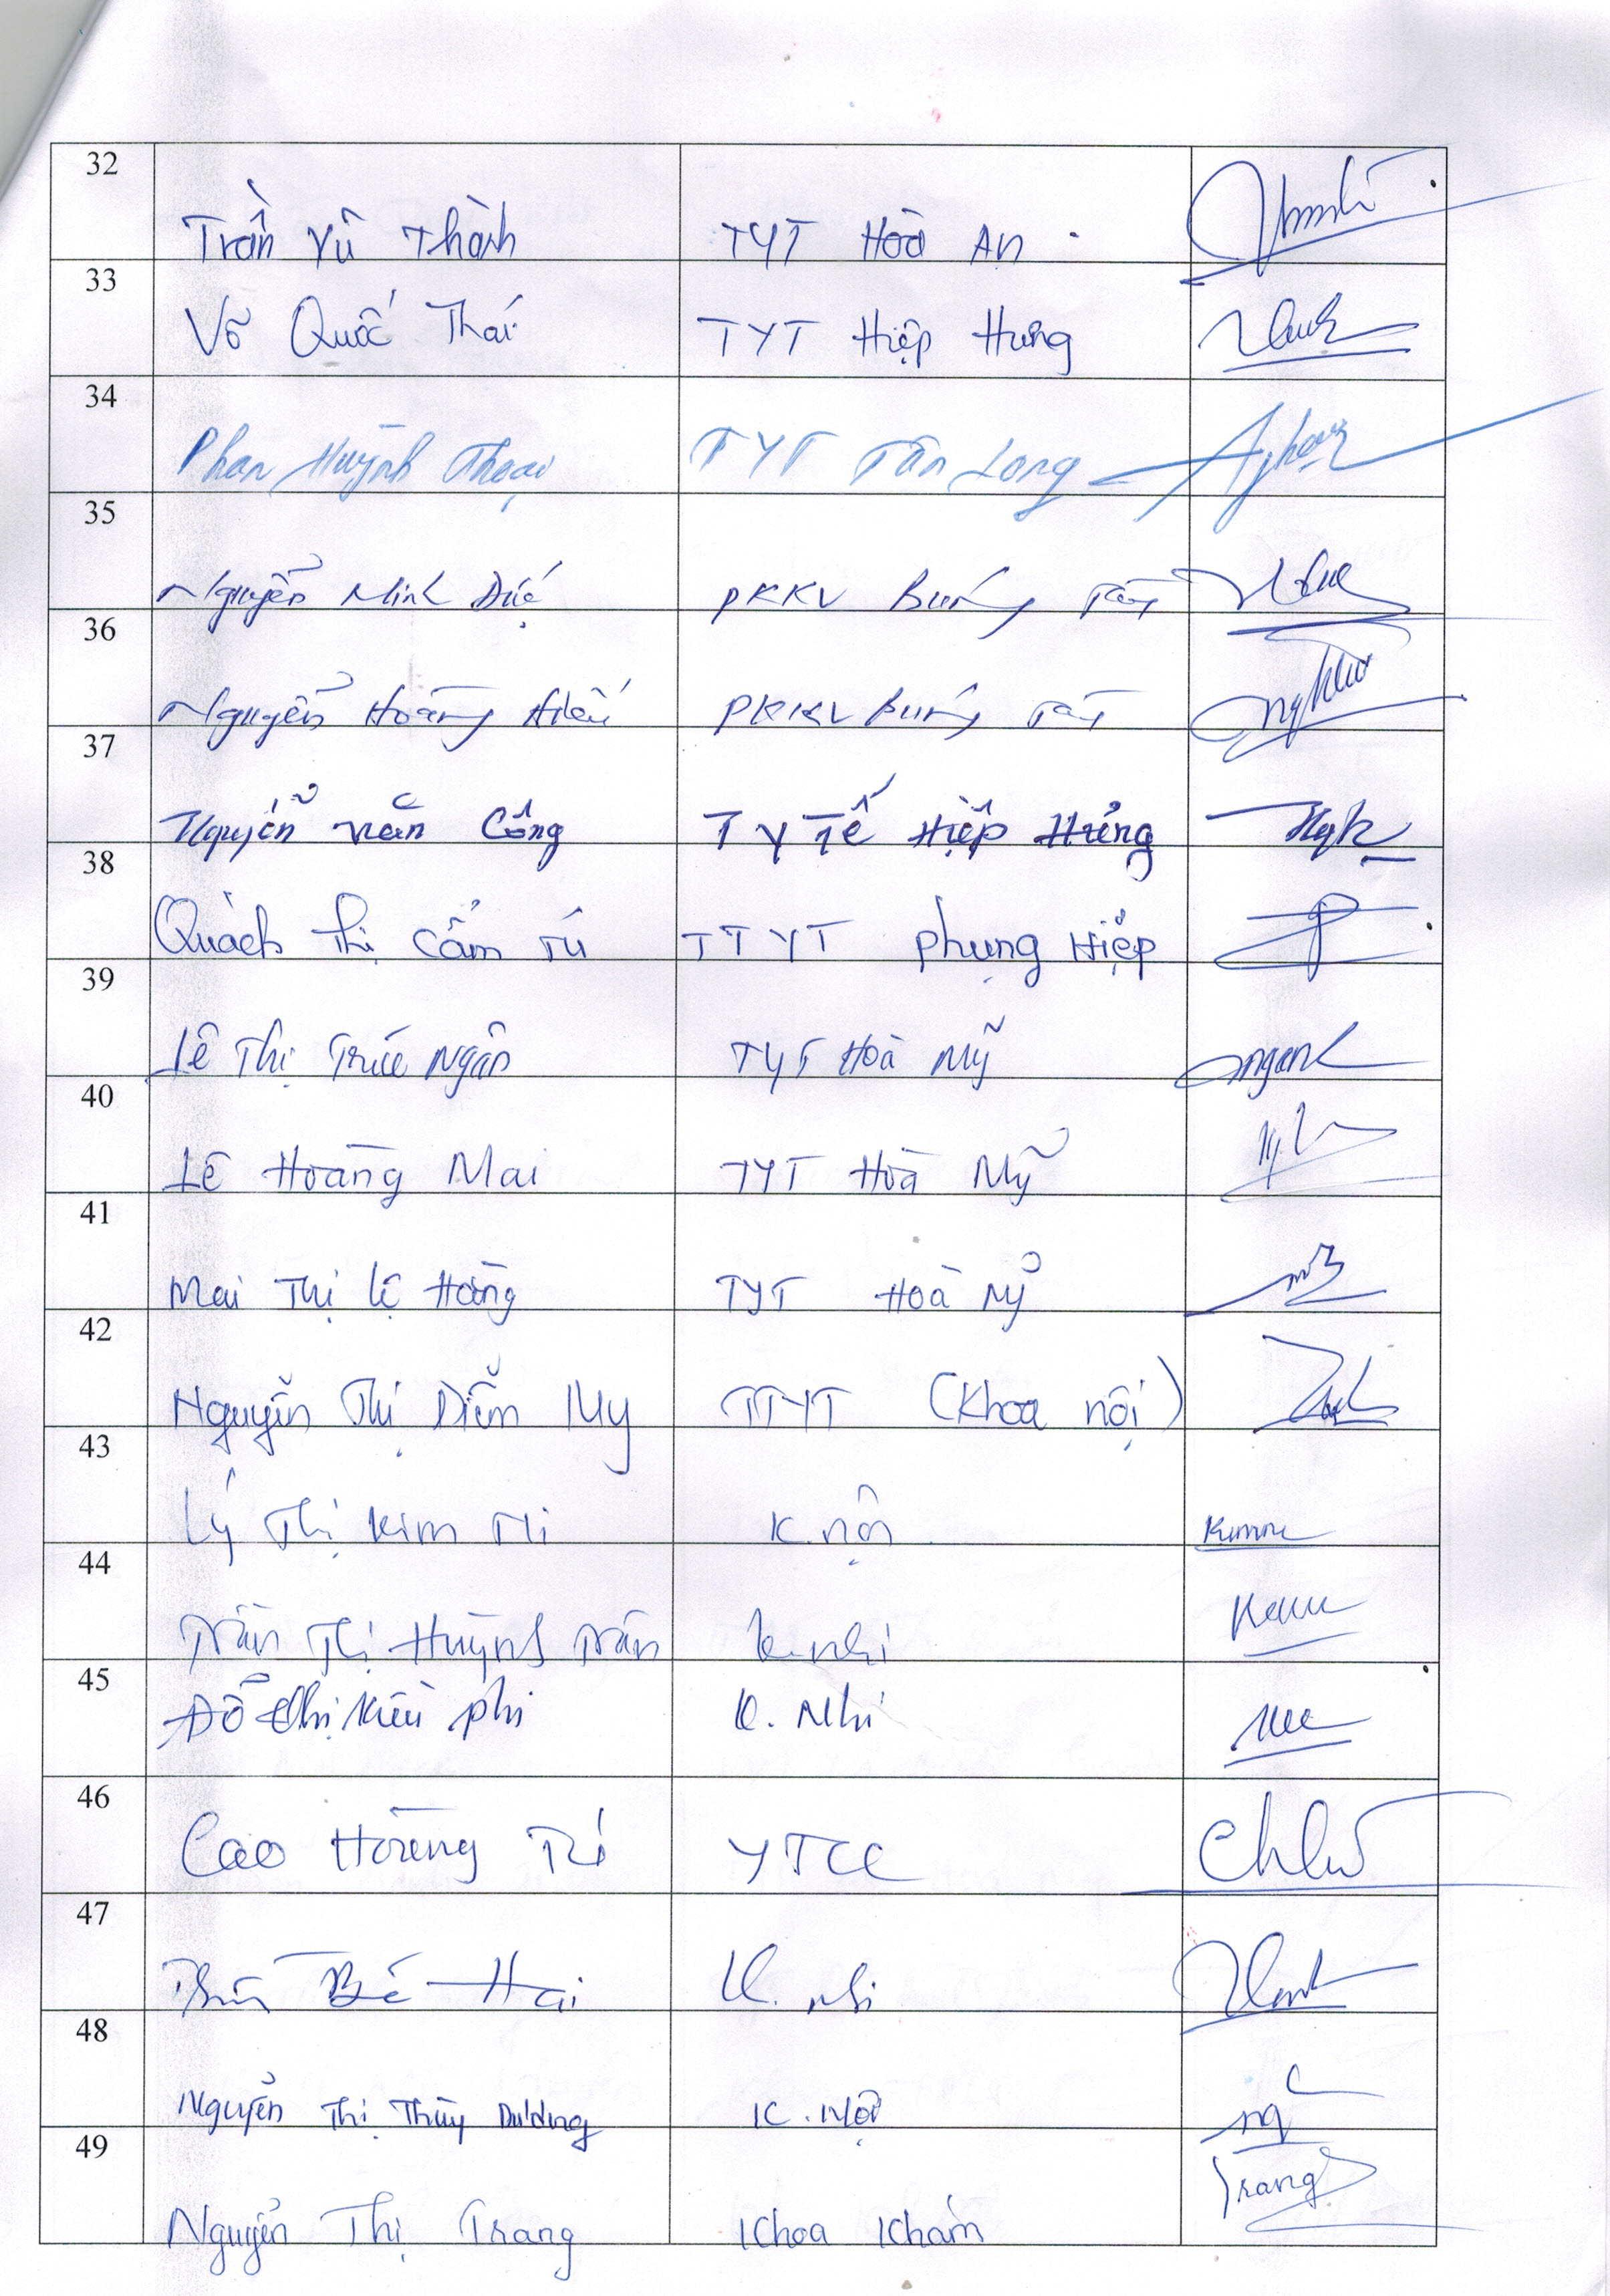 32 Trần Vũ Thành TYT Hoà An
33 Võ Quốc Thái TYT Hiệp Hưng
34 Phan Huỳnh Thoại TYT Tân Long
35 Nguyễn Minh Đức PKKV Búng Tàu
36 Nguyễn Hoàng Hiếu PKKV Búng Tàu
37 Nguyễn Văn Công T Y Tế Hiệp Hưng
38 Quách Thị Cẩm Tú TTYT Phụng Hiệp
39 Lê Thị Trúc Ngân TYT Hoà Mỹ
40 Lê Hoàng Mai TYT Hoà Mỹ
41 Mai Thị Lệ Hằng TYT Hoà Mỹ
42 Nguyễn Thị Diễm My TTYT (Khoa nội)
43 Lý Thị Kim K.nội
44 Trần Thị Huỳnh Trân K.nhi
45 Đỗ Thị Kiều Phi K. Nhi
46 Cao Hoàng YTCC
47 Bé Hai K. nhi
48 Nguyễn Thị Thùy Dương K. Nội
49 Nguyễn Thị Trang Khoa Khám Trang